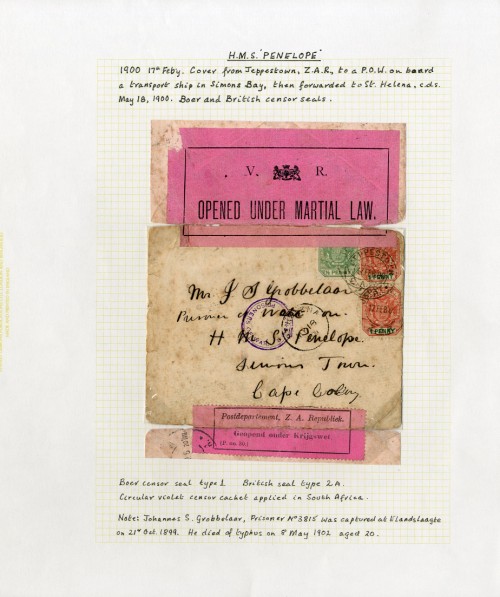 H.M.S. "PENELOPE"
1900 17th Feby. Cover from Jeppestown, Z.A.R., to a P.O.W. on board
a transport ship in Simons Bay, then forwarded to St. Helena, c.d.s.
May 18, 1900. Boer and British censor seals.
V. R.
OPENED UNDER MARTIAL LAW.
Mr. J S Grobbelaar
Prisoner of war on
H M S. Penelope.
Simons Town.
Cape Colony
1 PENNY
Postdepartement, Z. A. Republiek.
Geopend onder Krijgswet.
Boer censor seal type 1 British seal type 2A.
Circular violet censor cachet applied in South Africa.
Note: Johannes S. Grobbelaar, Prisoner No 3815 was captured at Elandslaagte
on 21st Oct. 1899. He died of typhus on 8 May 1902 aged 20.